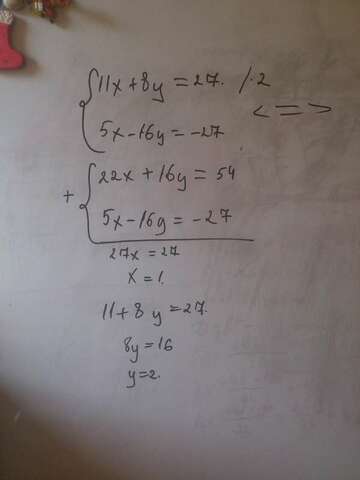 11x+8y=27. /·2
<=>
5x-16y=-27
22x+16y=54
+
5x-16y=-27
27x=27
x=1.
11+8y=27.
8y=16
y=2.